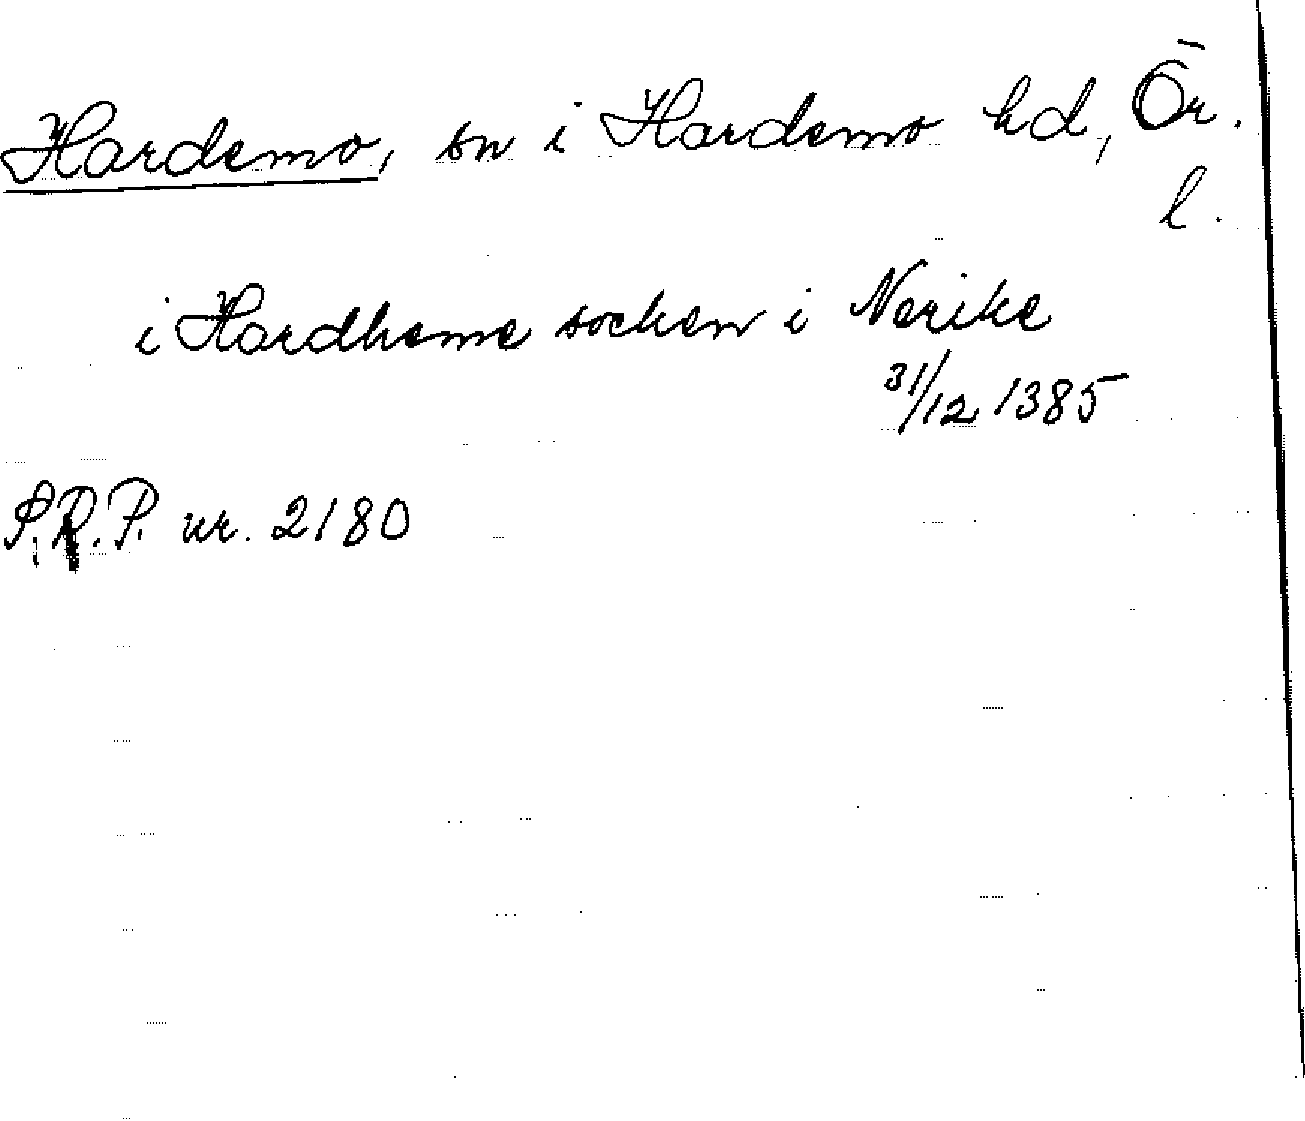 Hardemo, sn i Hardemo hd, Ör.
l.
i Hardheme socken i Nerike
31/12 1385
S.R.P. nr. 2180